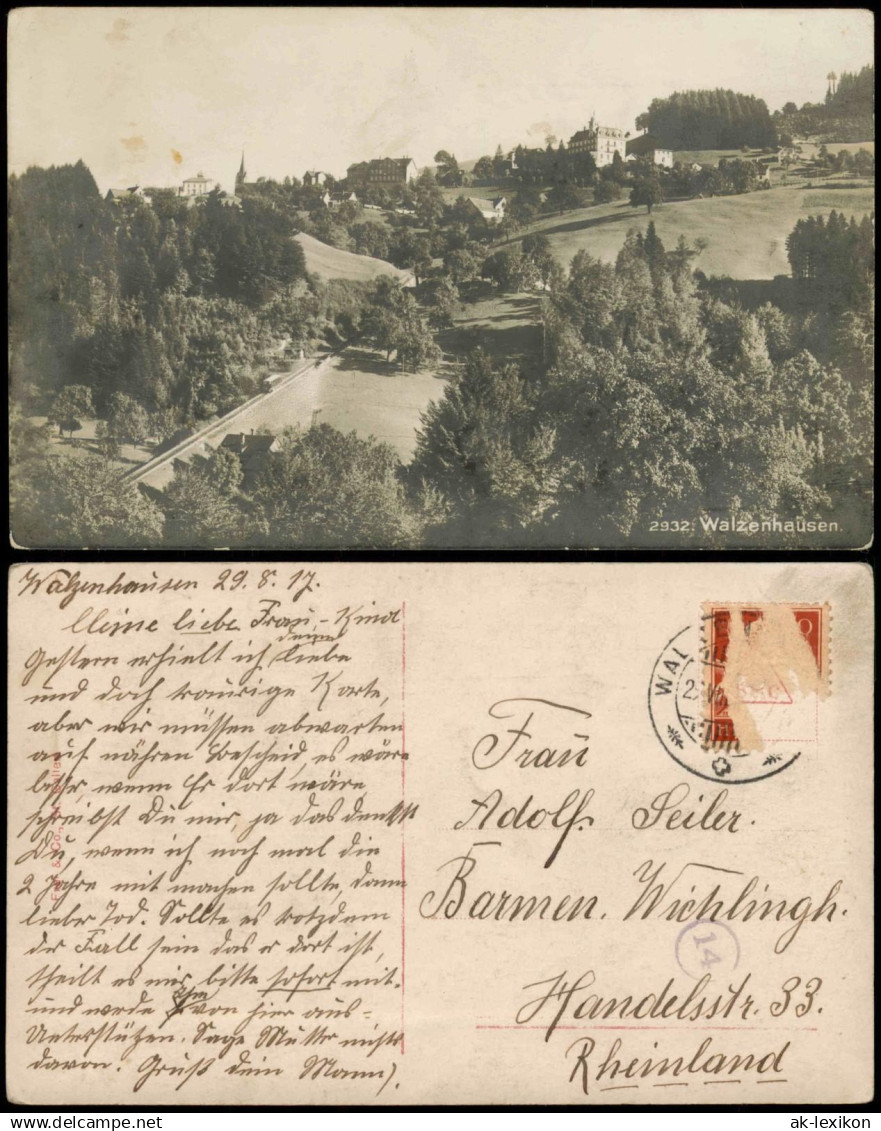 2932. Walzenhausen.
Walzenhausen 29.8.17.
Meine liebe Frau, - Kind
Gestern erhielt ich deine liebe
und doch traurige Karte,
aber wir müssen abwarten
auf nähren Bescheid, es wäre
besser, wenn Er dort wäre
schreibst Du mir, ja das denkst
Du, wenn ich noch mal die
2 Jahre mit machen sollte, dann
lieber Tod. Sollte es trotzdem
der Fall sein das er dort ist,
theilt es mir bitte sofort mit.
und werde ihm von hier aus-
Unterstützen. Sage Mutter nichts
davon. Gruß dein Mann).
WAL
Frau
Adolf Seiler.
Barmen. Wichlingh.
14
Handelsstr. 33.
Rheinland
ak-lexikon